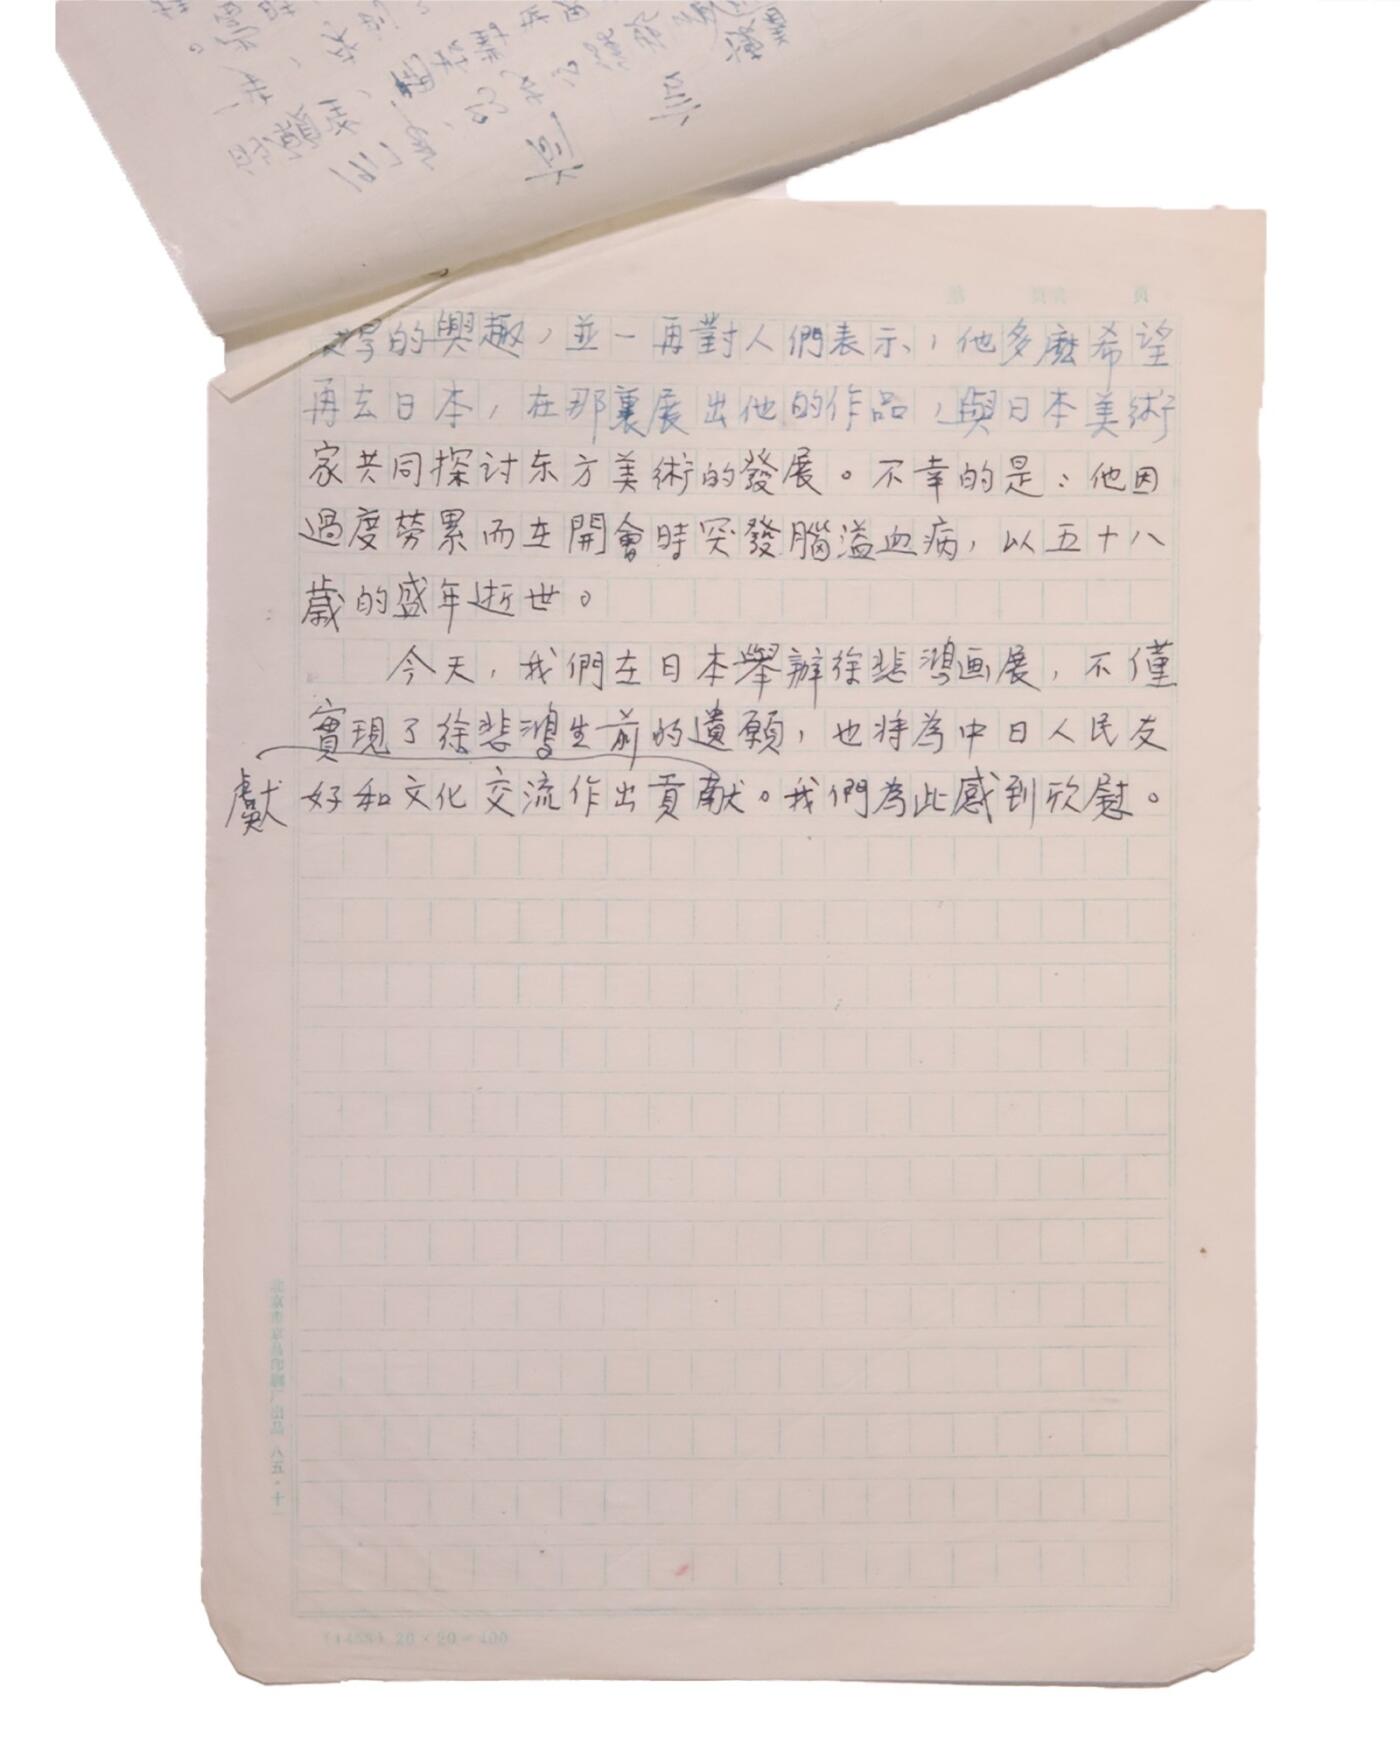 的興趣，並一再對人們表示，他多麽希望
再去日本，在那裏展出他的作品，與日本美術
家共同探讨东方美術的發展。不幸的是：他因
過度勞累而在開會時突發腦溢血病，以五十八
歲的盛年逝世。
今天，我們在日本舉辦徐悲鴻画展，不僅
實現了徐悲鴻生前的遺願，也将為中日人民友
好和文化交流作出貢献。我們為此感到欣慰。
獻
北京市京昌印刷厂出品 八五·十
(1458) 20×20=400